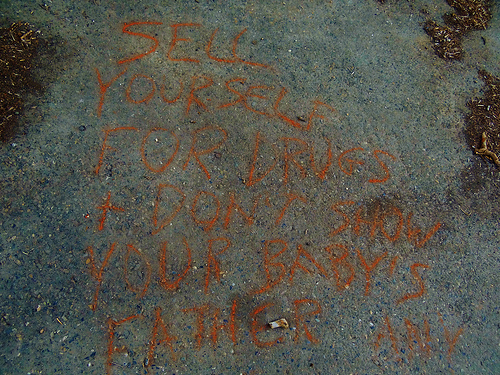 SELL
YOURSELF
FOR DRUGS
+ DON'T SHOW
YOUR BABY'S
FATHER ANY